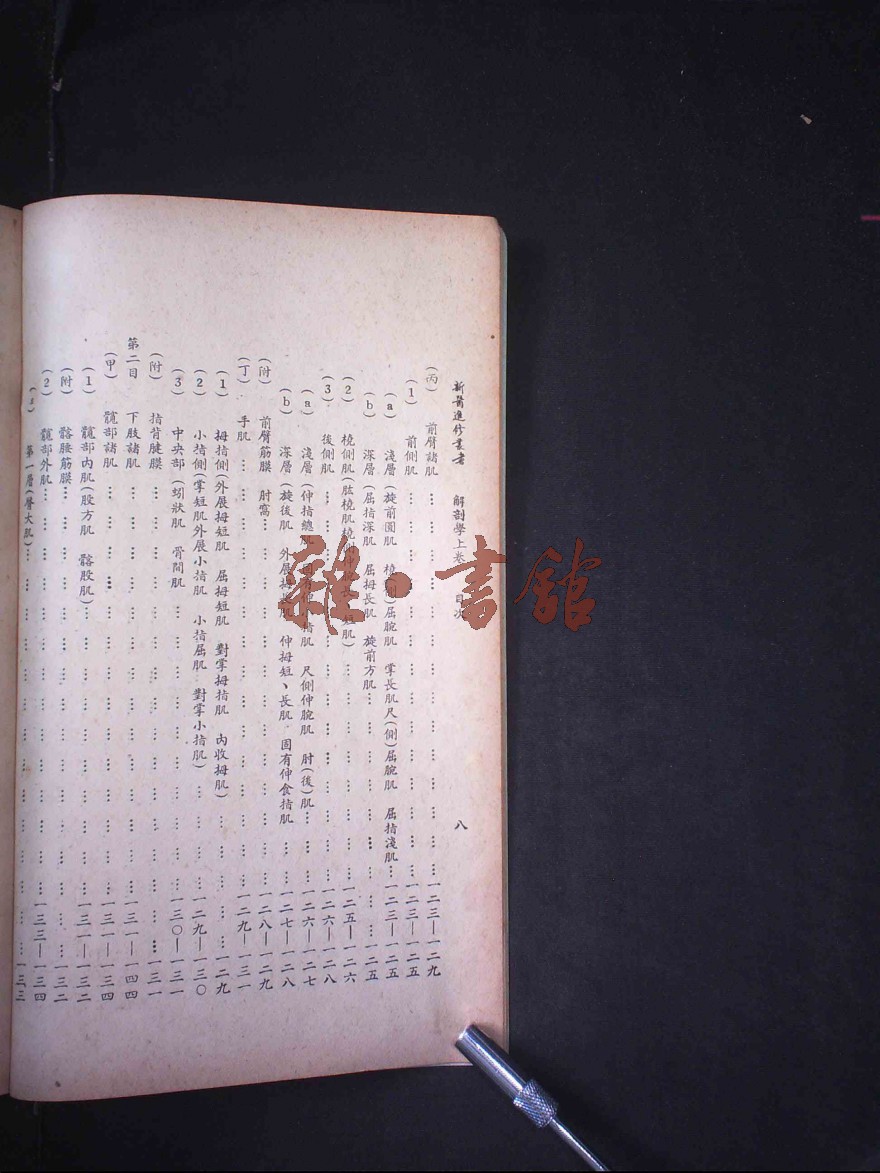 新醫進修叢書 解剖學上卷 目次 八
(丙) 前臂諸肌……一二三—一二九
(1) 前側肌……一二三—一二五
(a) 淺層(旋前圓肌 橈(側)屈腕肌 掌長肌尺(側)屈腕肌 屈指淺肌……一二三—一二五
(b) 深層(屈指深肌 屈拇長肌 旋前方肌……一二五
(2) 橈側肌(肱橈肌橈側 短肌)……一二五—一二六
(3) 後側肌……一二六—一二八
(a) 淺層(伸指總肌 指肌 尺側伸腕肌 肘(後)肌……一二六—一二七
(b) 深層(旋後肌 外展拇長肌 伸拇短、長肌 固有伸食指肌……一二七—一二八
(附) 前臂筋膜 肘窩……一二八—一二九
(丁) 手肌……一二九—一三一
(1) 拇指側(外展拇短肌 屈拇短肌 對掌拇指肌 內收拇肌)……一二九
(2) 小指側(掌短肌外展小指肌 小指屈肌 對掌小指肌)……一二九—一三〇
(3) 中央部(蚓狀肌 骨間肌……一三〇—一三一
(附) 指背腱膜……一三一
第二目 下肢諸肌……一三一—一四四
(甲) 髖部諸肌……一三一—一三四
(1) 髖部內肌(股方肌 髂股肌)……一三一—一三二
(附) 髂腰筋膜……一三二
(2) 髖部外肌……一三三—一三四
(a) 第一層(臀大肌)……一三三
雜·書館